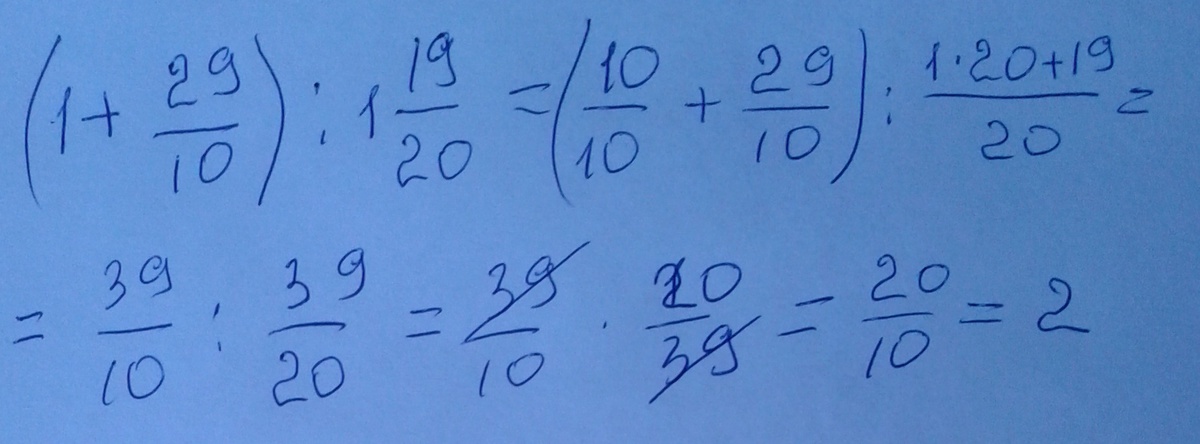 (1 + 29/10) : 1 19/20 = (10/10 + 29/10) : 1·20+19/20 =
= 39/10 : 39/20 = 39/10 · 20/39 = 20/10 = 2